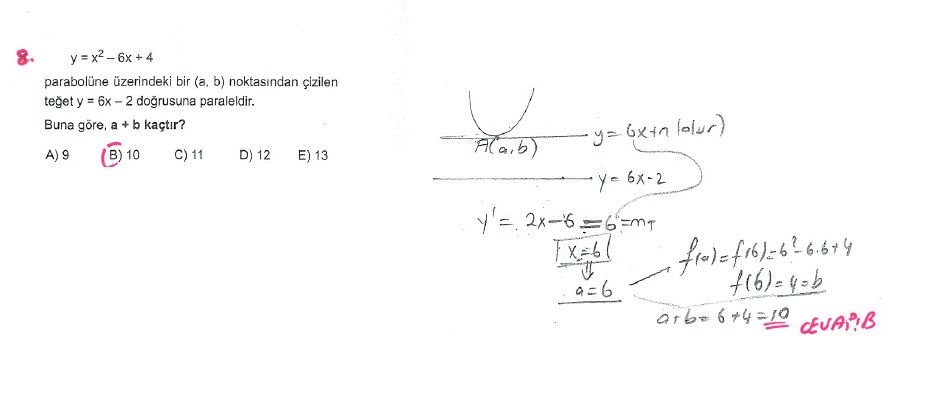 8. y = x² – 6x + 4
parabolüne üzerindeki bir (a, b) noktasından çizilen
teğet y = 6x – 2 doğrusuna paraleldir.
Buna göre, a + b kaçtır?
A) 9 B) 10 C) 11 D) 12 E) 13
A(a,b)
y = 6x+n (olur)
y = 6x-2
y' = 2x-6 = 6 = mT
x=6
⇓
a=6
f(a)=f(6)=6²-6.6+4
f(6)=4=b
a+b=6+4=10
CEVAP:B